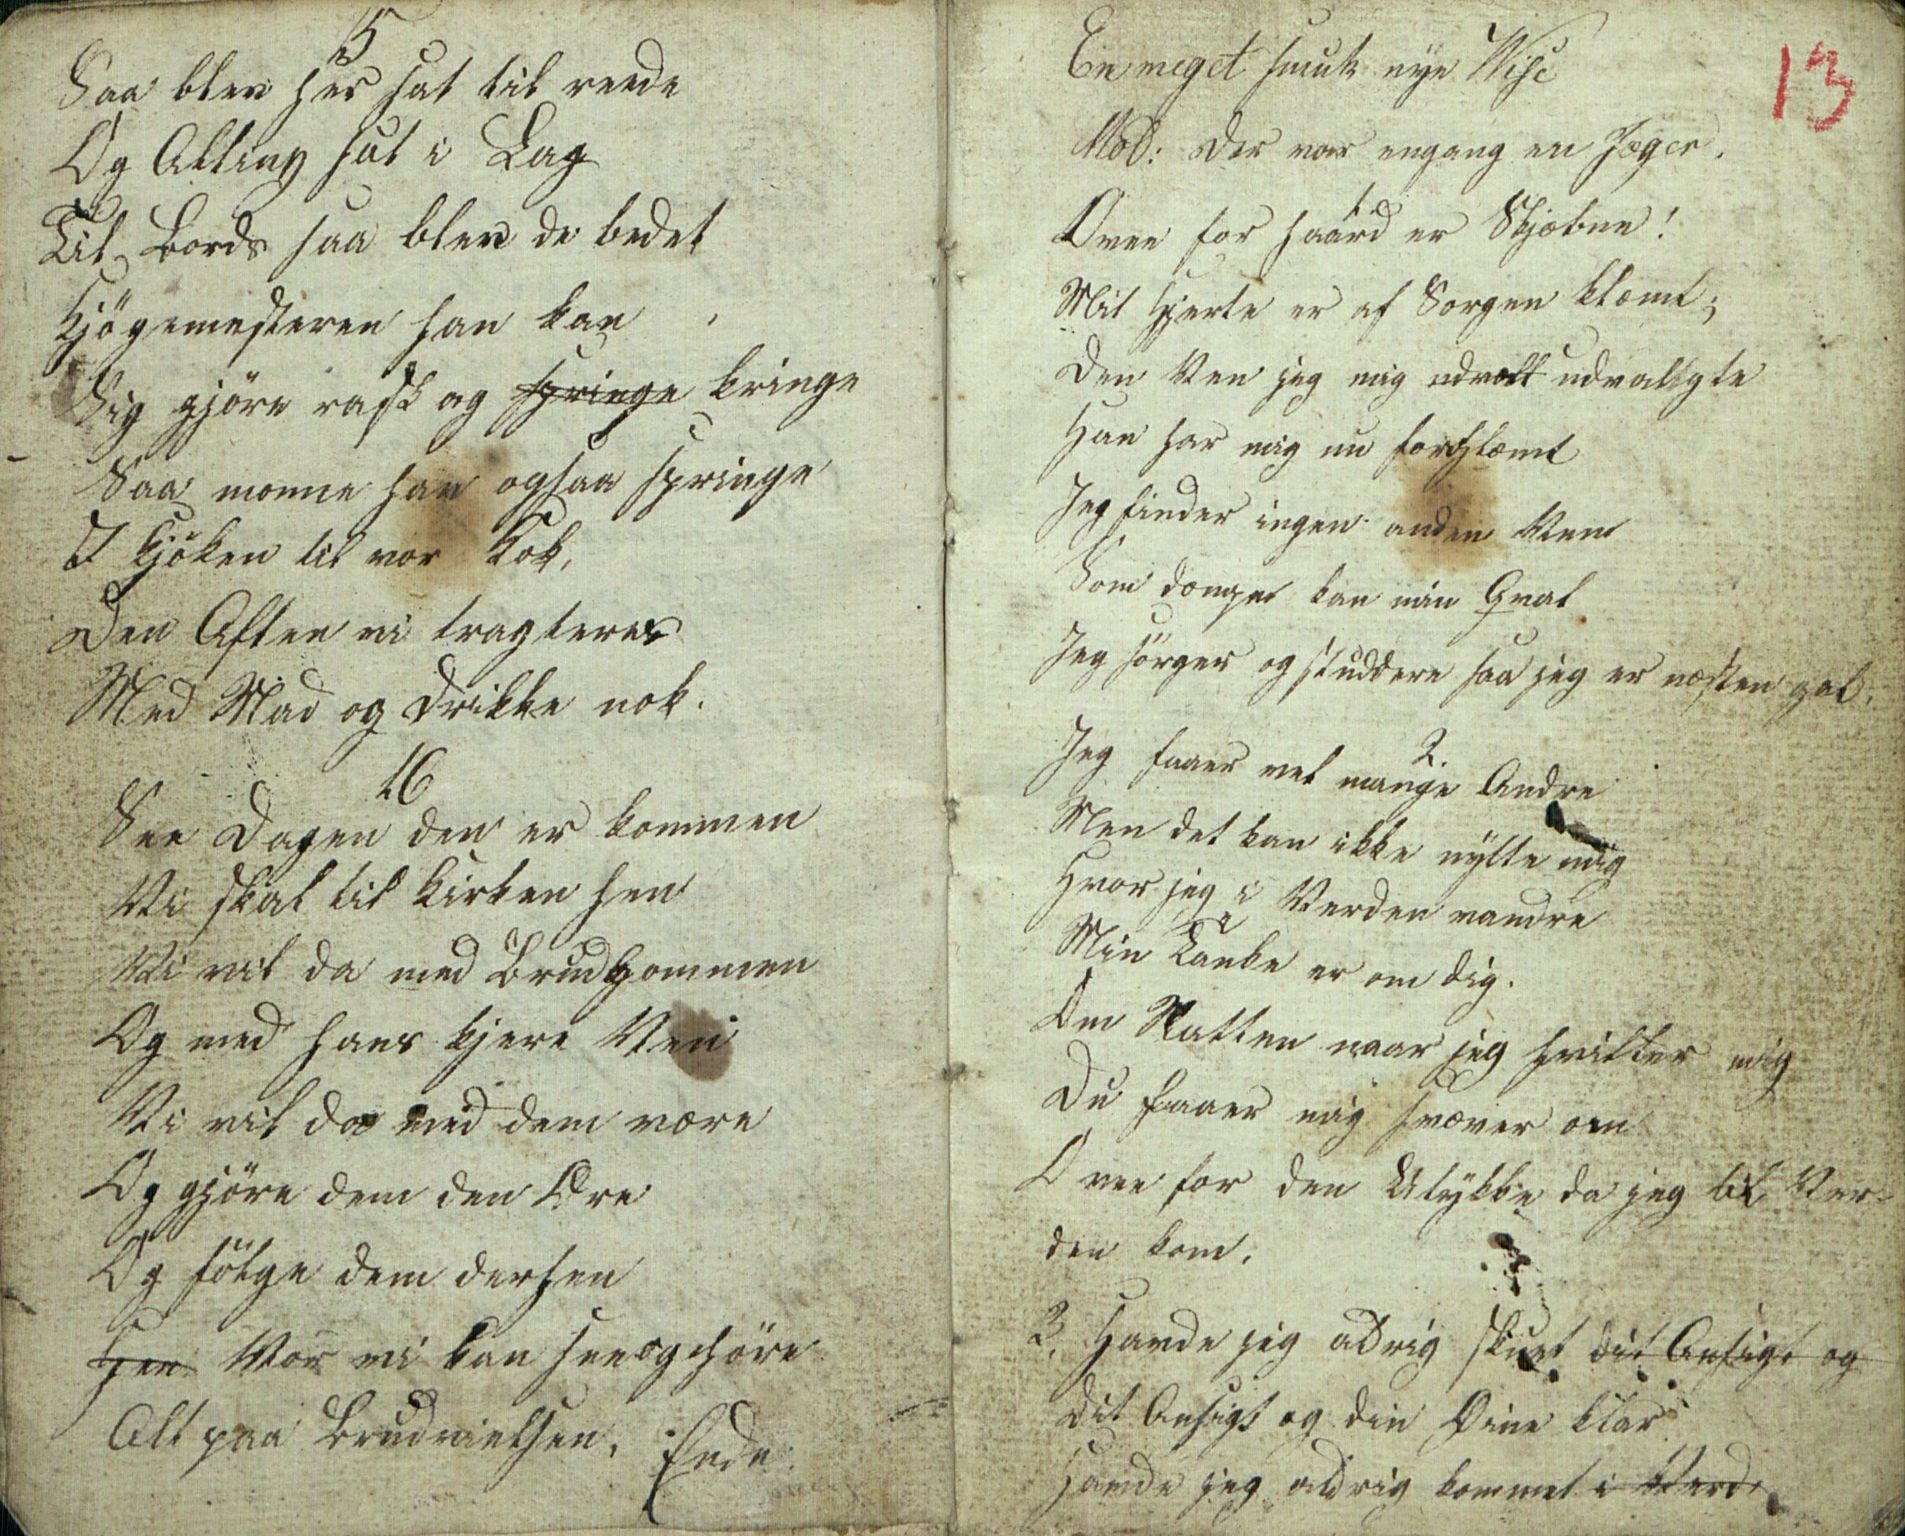 15
Saa blev her sat til reede
Og Alting sat i Lag
Til Bords saa blev de bedet
Kjögemesteren han kan
Sig gjöre rask og springe kringe
Saa monne han ogsaa springe
I Kjöken til vor Kok,
Den Aften vi tragteres
Med Mad og Drikke nok.
16
See Dagen den er kommen
Vi skal til Kirken hen
Vi vil da med Brudgommen
Og med hans kjere Ven
Vi vil da med dem være
Og gjöre dem den Ære
Og fölge dem derhen
Hen Vor vi kan see og höre
Alt paa Brudvielsen. Ende.
13
En meget smuk nye Vise
Mel: Der var engang en Jæger.
1.
O vee for haard er Skjæbne!
Mit Hjerte er af Sorgen klæmt;
Den Ven jeg mig udvalt udvalgte
Han har mig nu forglæmt
Jeg finder ingen anden Ven
Som dæmpe kan min Qval
Jeg sörger og studdere saa jeg er næsten gal.
2.
Jeg faaer vel mange Andre
Men det kan ikke nytte mig
Hvor jeg i Verden vandre
Min Tanke er om dig.
Om Natten naar jeg hviller mig
Du faaer mig svæver om
O vee for den Ulykke da jeg til Ver-
den kom.
3. Havde jeg aldrig skuet dit Ansigt og
Dit Ansigt og din Øine klar
Havde jeg aldrig kommet i Verd